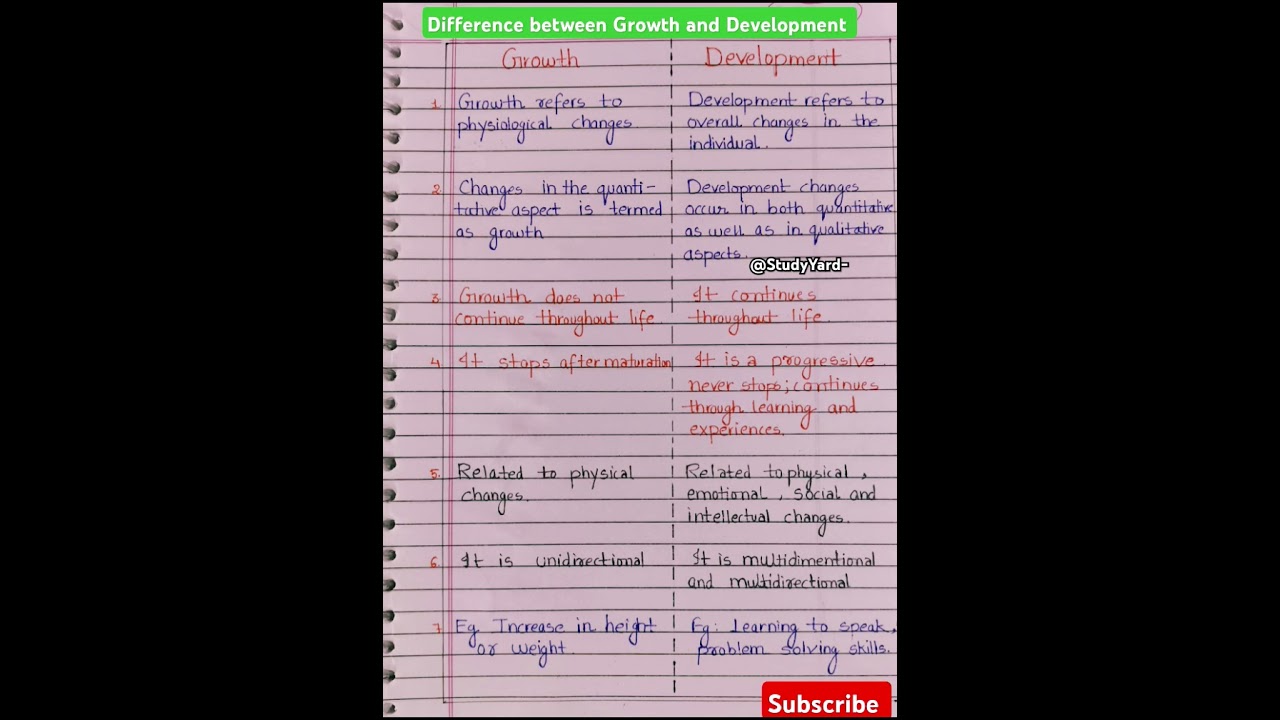 Difference between Growth and Development
Growth
Development
1. Growth refers to
physiological changes
Development refers to
overall changes in the
individual.
2. Changes in the quanti-
tative aspect is termed
as growth
Development changes
occur in both quantitative
as well as in qualitative
aspects.
@StudyYard-
3. Growth does not
continue throughout life.
It continues
throughout life.
4. It stops after maturation
It is a progressive
never stops; continues
through learning and
experiences.
5. Related to physical
changes.
Related to physical,
emotional, social and
intellectual changes.
6. It is unidirectional
It is multidimentional
and multidirectional
7. Eg. Increase in height
or weight.
Eg: Learning to speak,
problem solving skills.
Subscribe